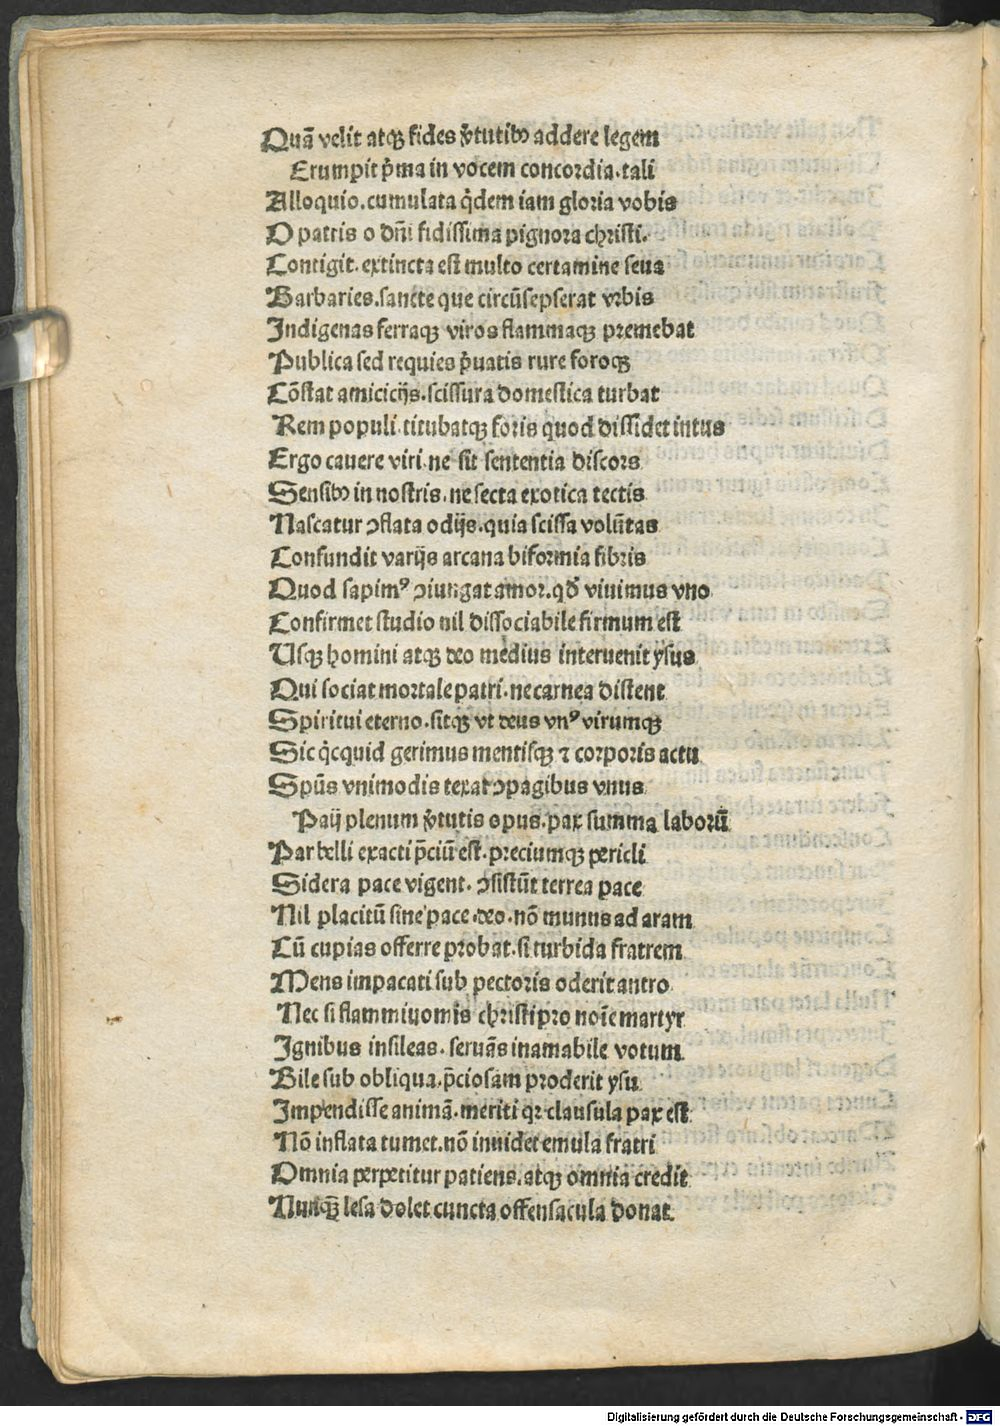 Quā velit atqꝫ fides ꝟtutibꝰ addere legem
Erumpit p̄ma in vocem concordia.tali
Alloquio.cumulata q̄dem iam gloria vobis
O patris o dn̄i fidissima pignora christi.
Contigit.extincta est multo certamine seua
Barbaries.sancte que circūsepserat vrbis
Indigenas ferraqꝫ viros flammaqꝫ premebat
Publica sed requies p̄uatis rure foroqꝫ
Cōstat amicicijs.scissura domestica turbat
Rem populi.titubatqꝫ foris quod dissidet intus
Ergo cauere viri.ne sit sententia discors
Sensibꝰ in nostris.ne secta exotica tectis
Nascatur ꝯflata odijs.quia scissa volūtas
Confundit varijs arcana biformia fibris
Quod sapimꝰ ꝯiungat amor.qd̄ viuimus vno
Confirmet studio nil dissociabile firmum est
Usqꝫ homini atqꝫ deo medius interuenit ysus
Qui sociat mortale patri.ne carnea distent
Spiritui eterno.sitqꝫ vt deus vnꝰ virumqꝫ
Sic q̄cquid gerimus mentisqꝫ ⁊ corporis actu
Spūs vnimodis texat ꝯpagibus vnus
Paij plenum ꝟtutis opus.pax summa laborū
Par belli exacti p̄ciū est.preciumqꝫ pericli
Sidera pace vigent.ꝯsistūt terrea pace
Nil placitū sine pace.deo.nō munus ad aram
Cū cupias offerre probat.si turbida fratrem
Mens impacati sub pectoris oderit antro
Nec si flammiuomis christi pro noīe martyr
Ignibus insileas.seruās inamabile votum
Bile sub obliqua.p̄ciosam proderit ysu
Impendisse animā.meriti qꝛ clausula pax est
Nō inflata tumet.nō inuidet emula fratri
Omnia perpetitur patiens.atqꝫ omnia credit
Nunqꝫ̄ lesa dolet cuncta offensacula donat.
Digitalisierung gefördert durch die Deutsche Forschungsgemeinschaft - DFG